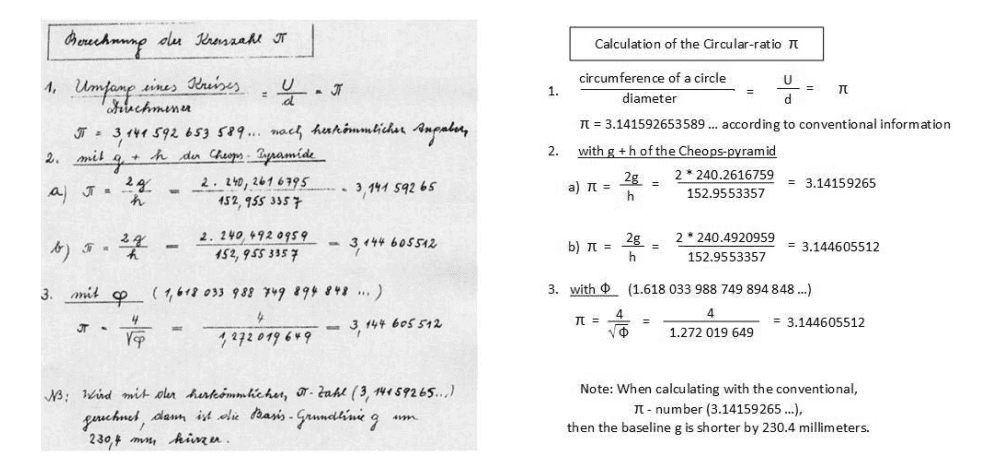 Berechnung der Kreiszahl π
1. Umfang eines Kreises / Durchmesser = U/d = π
π = 3,141 592 653 589... nach herkömmlicher Angaben
2. mit g + h der Cheops-Pyramide
a) π = 2g/h = 2 . 240,2616795 / 152,9553357 = 3,14159265
b) π = 2g/h = 2. 240,4920959 / 152,9553357 = 3,144605512
3. mit φ (1,618 033 988 749 894 848 ...)
π = 4/√φ = 4 / 1,272019649 = 3,144605512
NB: Wird mit der herkömmlichen, π-Zahl (3,14159265...)
gerechnet, dann ist die Basis-Grundlinie g um
230,4 mm, kürzer.
Calculation of the Circular-ratio π
1. circumference of a circle / diameter = U/d = π
π = 3.141592653589 ... according to conventional information
2. with g + h of the Cheops-pyramid
a) π = 2g/h = 2 * 240.2616759 / 152.9553357 = 3.14159265
b) π = 2g/h = 2 * 240.4920959 / 152.9553357 = 3.144605512
3. with Φ (1.618 033 988 749 894 848 ...)
π = 4/√Φ = 4 / 1.272 019 649 = 3.144605512
Note: When calculating with the conventional,
π - number (3.14159265 ...),
then the baseline g is shorter by 230.4 millimeters.